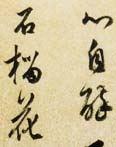 心自醉
石榴花